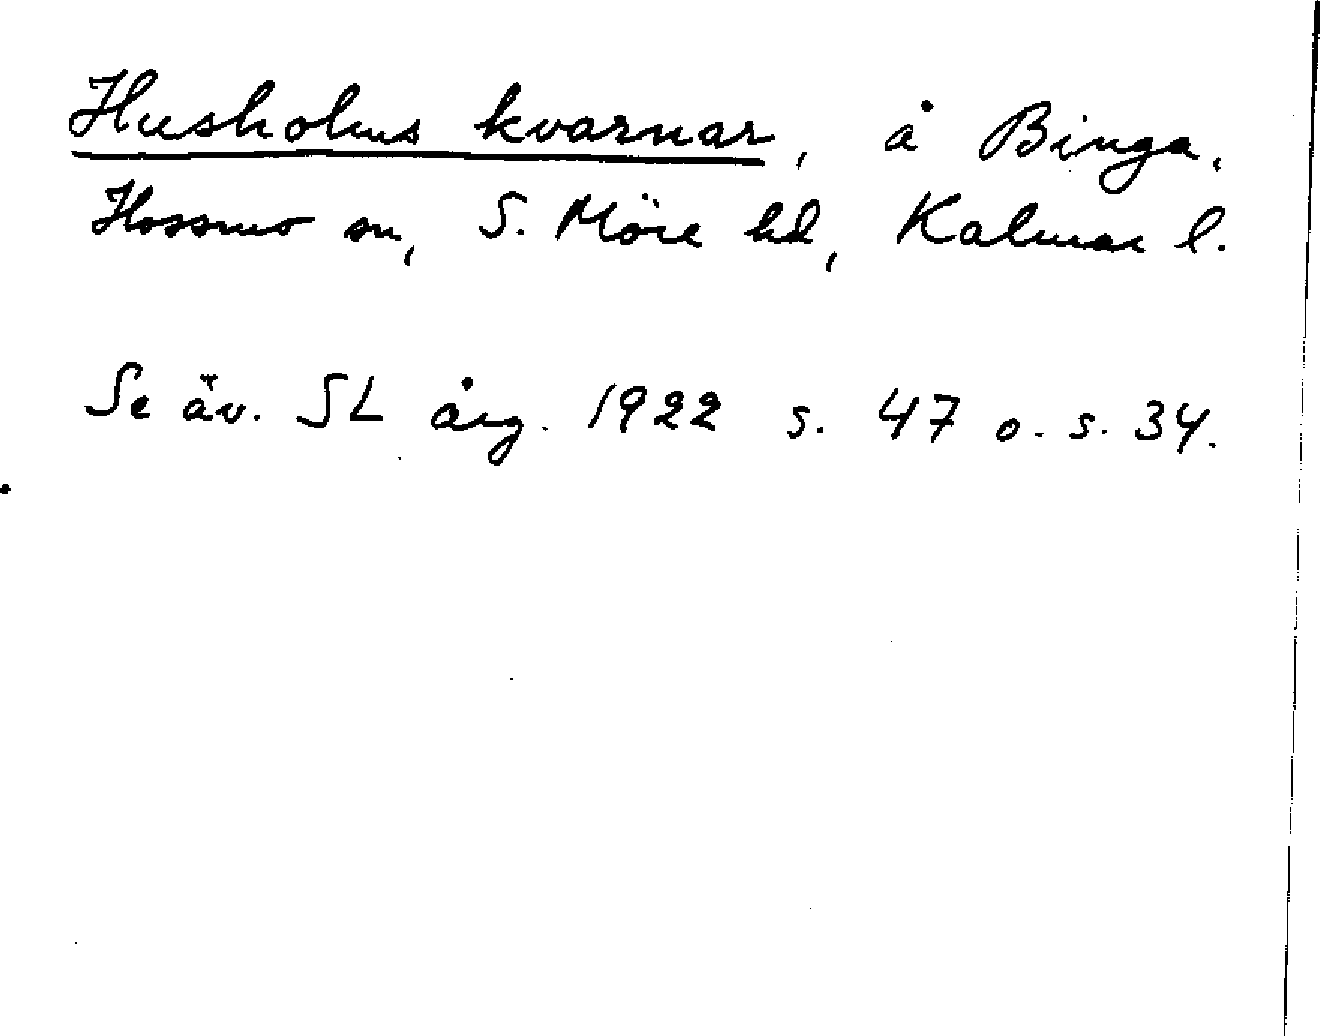 Husholms kvarnar, å Binga,
Hossmo sn, S. Möre hd, Kalmar l.
Se äv. SL årg. 1922 s. 47 o. s. 34.